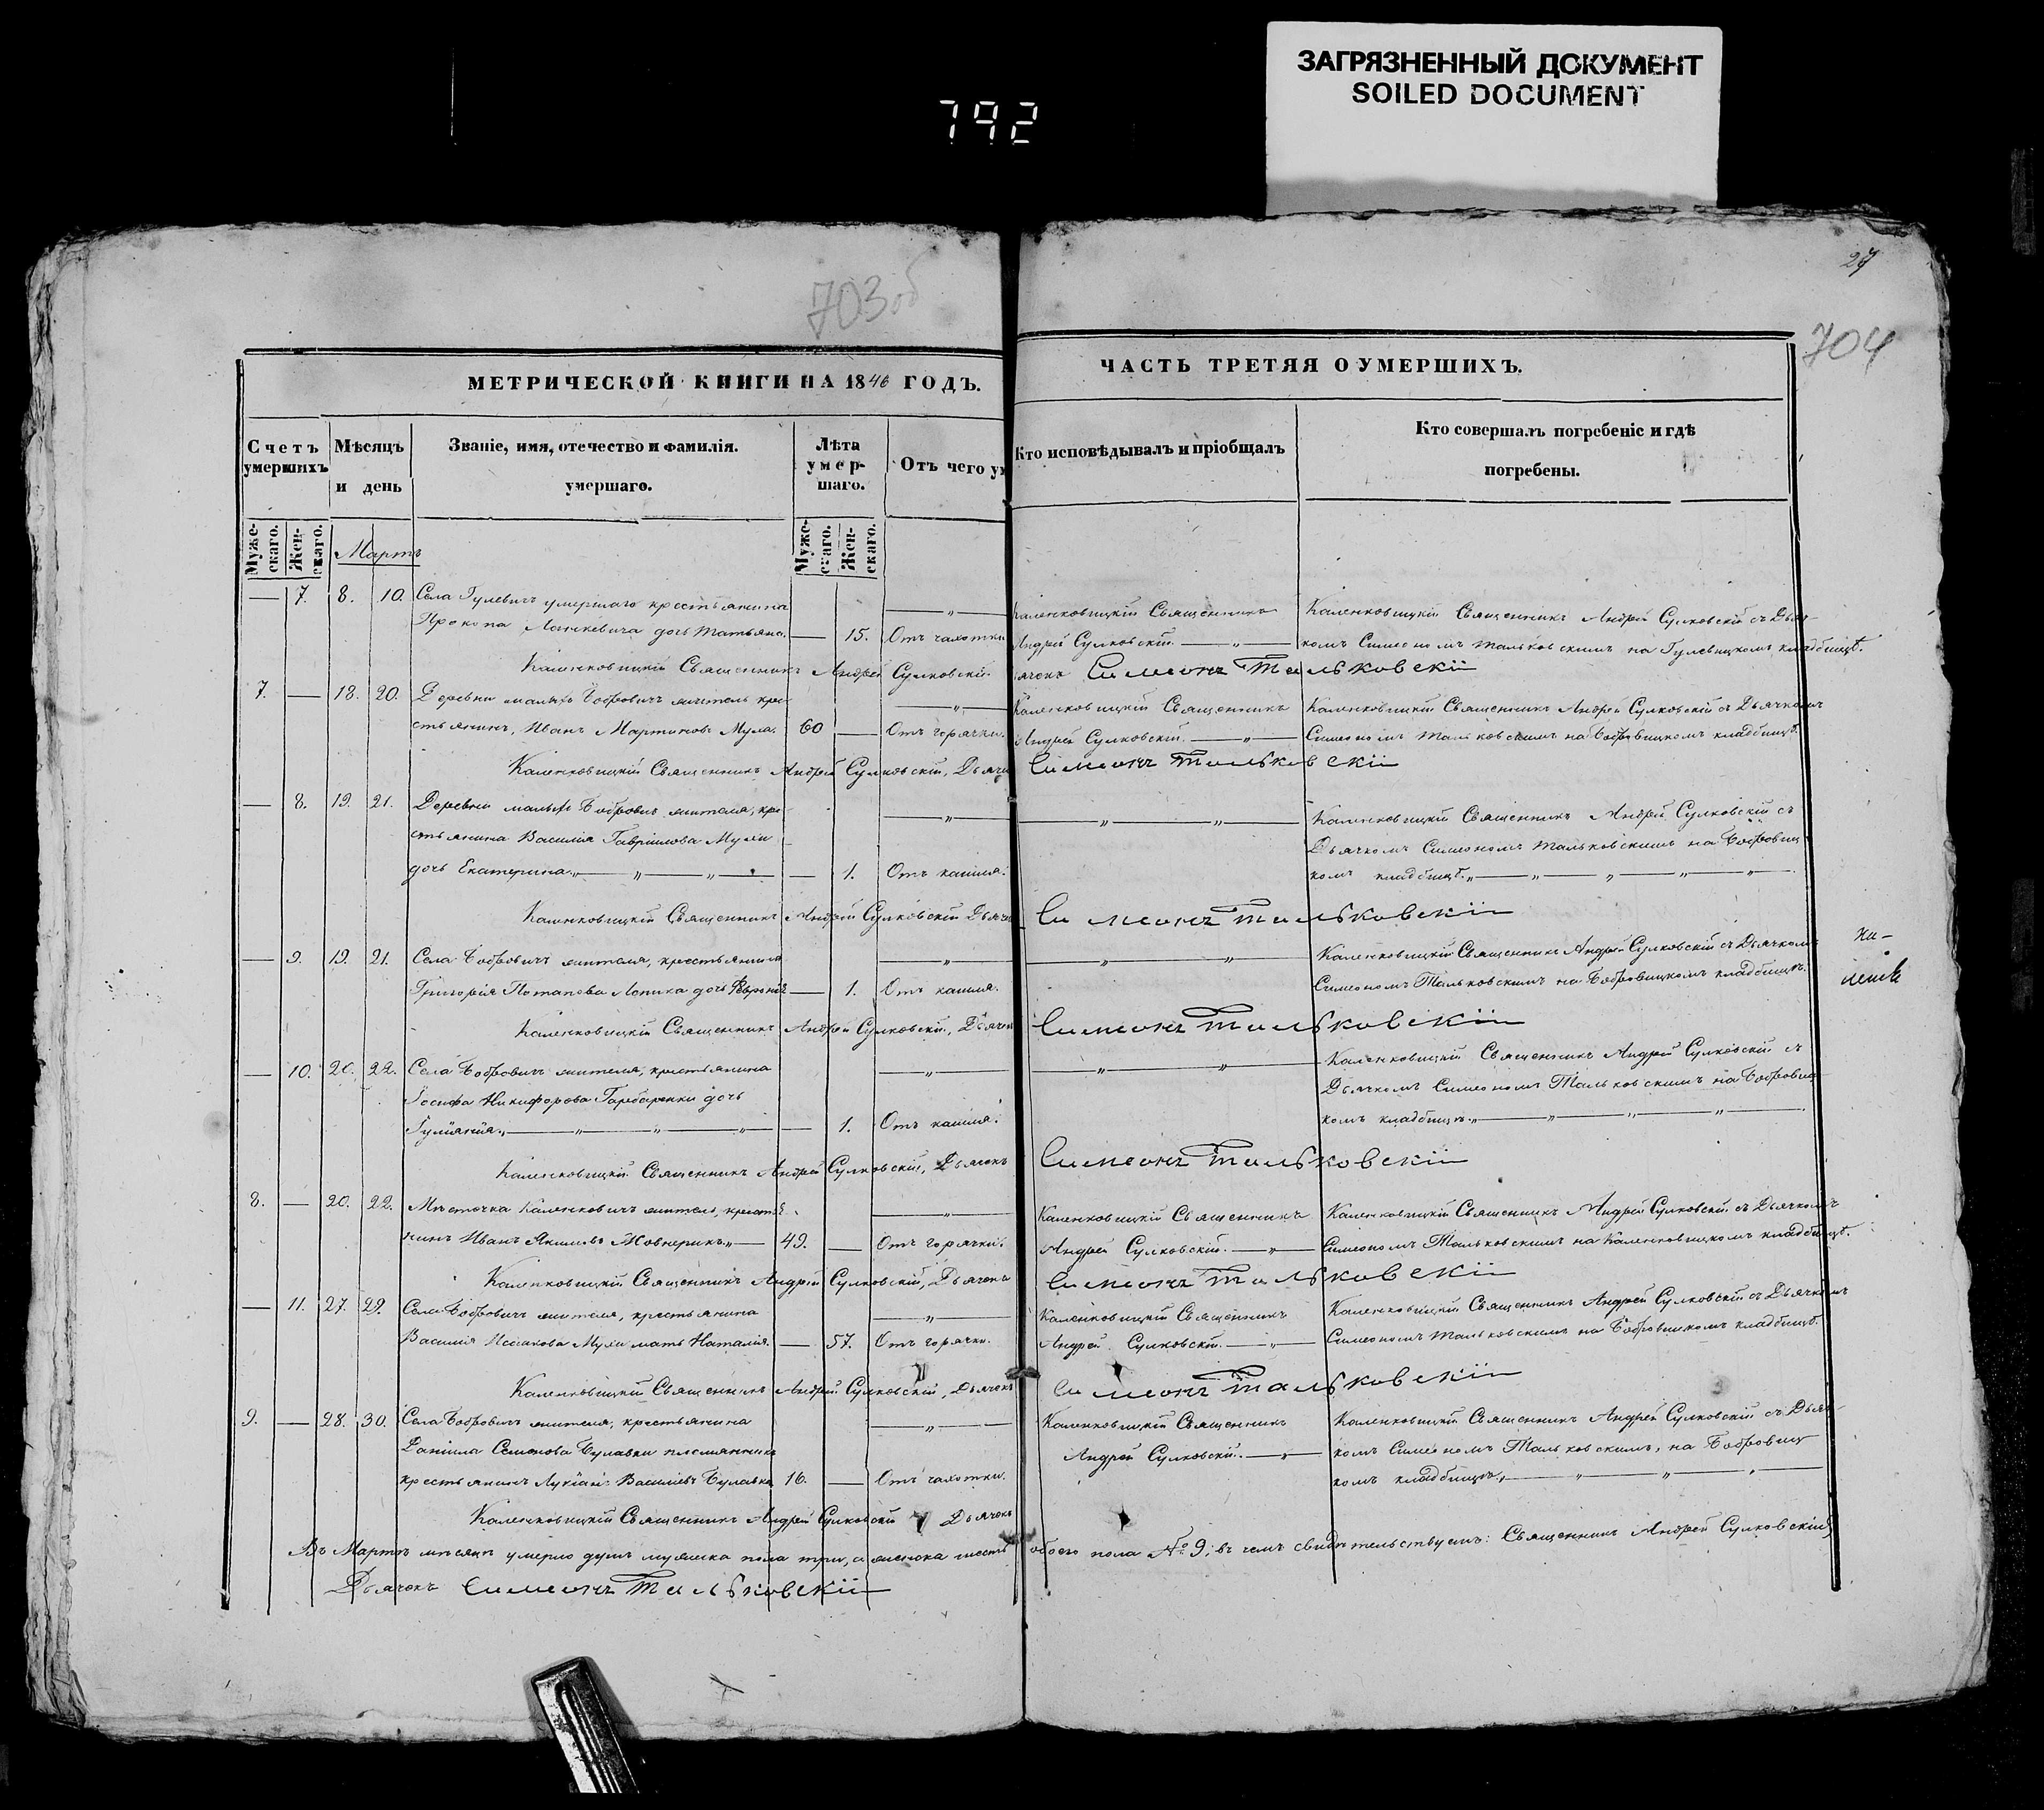 ЗАГРЯЗНЕННЫЙ ДОКУМЕНТ
SOILED DOCUMENT
792
703об
27
704
МЕТРИЧЕСКОЙ КНИГИ НА 1846 ГОДЪ.
ЧАСТЬ ТРЕТЯЯ О УМЕРШИХЪ.
Счетъ умершихъ
Мѣсяцъ и день
Званіе, имя, отечество и фамилія. умершаго.
Лѣта умер-шаго.
Отъ чего ум
Кто исповѣдывалъ и пріобщалъ
Кто совершалъ погребеніе и гдѣ погребены.
Муже-скаго. Жен-скаго.
Мартъ
Муже-скаго. Жен-скаго.
— 7. 8. 10. Села Гулевичъ умершаго крестьянина — „ — Каленковицкій Священникъ Каленковицкій Священникъ Андрей Сулковскій съ Дьяч-
Прокопа дочь Татьяна. — 15. Отъ чахотки Андрей Сулковскій. — „ — комъ Симеономъ Тальковскимъ на Гулевицкомъ кладбищѣ.
Каленковицкій Священникъ Андрей Сулковскій. ячекъ Симеонъ Тальковскій
7. — 18. 20. Деревни малыхъ Бобровичъ житель кре- — „ — Каленковицкій Священникъ Каленковицкій Священникъ Андрей Сулковскій съ Дьячкомъ
стьянинъ, Иванъ Мартиновъ Мула. 60 — Отъ горячки. Андрей Сулковскій. — „ — Симеономъ Тальковскимъ на Бобровицкомъ кладбищѣ.
Каленковицкій Священникъ Андрей Сулковскій, Дьячекъ Симеонъ Тальковскій
— 8. 19. 21. Деревни малыхъ Бобровичъ жителя, кре- — „ — — „ — „ — Каленковицкій Священникъ Андрей Сулковскій съ
стьянина Василія Гавріилова Мули Дьячкомъ Симеономъ Тальковскимъ на Бобровиц-
дочь Екатерина. „ — „ — „ — — 1. Отъ кашля. комъ кладбищѣ. „ — „ — „ — „ — „ —
Каленковицкій Священникъ Андрей Сулковскій Дьячекъ Симеонъ Тальковскій
— 9. 19. 21. Села Бобровичъ жителя, крестьянина — „ — — „ — „ — Каленковицкій Священникъ Андрей Сулковскій съ Дьячкомъ
Григорія Потапова дочь Февронія — 1. Отъ кашля. Симеономъ Тальковскимъ на Бобровицкомъ кладбищѣ.
Каленковицкій Священникъ Андрей Сулковскій, Дьячекъ Симеонъ Тальковскій
— 10. 20. 22. Села Бобровичъ жителя, крестьянина — „ — — „ — „ — Каленковицкій Священникъ Андрей Сулковскій съ
Іосифа Никифорова Гарбаренки дочь Дьячкомъ Симеономъ Тальковскимъ на Бобровиц-
Іуліанія. „ — „ — „ — „ — — 1. Отъ кашля. комъ кладбищѣ. „ — „ — „ — „ —
Каленковицкій Священникъ Андрей Сулковскій, Дьячекъ Симеонъ Тальковскій
8. — 20. 22. Мѣстечка Каленковичъ житель, крестья- — „ — Каленковицкій Священникъ Каленковицкій Священникъ Андрей Сулковскій съ Дьячкомъ
нинъ Иванъ Якимовъ Жовнерикъ. „ — 49. — Отъ горячки. Андрей Сулковскій. — „ — Симеономъ Тальковскимъ на Каленковицкомъ кладбищѣ.
Каленковицкій Священникъ Андрей Сулковскій, Дьячекъ Симеонъ Тальковскій
— 11. 27. 29. Села Бобровичъ жителя, крестьянина — „ — Каленковицкій Священникъ Каленковицкій Священникъ Андрей Сулковскій съ Дьячкомъ
Василія Исакова Мули мать Наталія. — 57. Отъ горячки. Андрей Сулковскій. — „ — Симеономъ Тальковскимъ на Бобровицкомъ кладбищѣ.
Каленковицкій Священникъ Андрей Сулковскій, Дьячекъ Симеонъ Тальковскій
9. — 28. 30. Села Бобровичъ жителя, крестьянина — „ — Каленковицкій Священникъ Каленковицкій Священникъ Андрей Сулковскій съ Дьяч-
Даніила Семенова Булавки племянникъ Андрей Сулковскій. — „ — комъ Симеономъ Тальковскимъ, на Бобровиц-
крестьянинъ Лукіанъ Васильевъ Булавка 16. — Отъ чахотки. комъ кладбищѣ. „ — „ — „ — „ —
Каленковицкій Священникъ Андрей Сулковскій Дьячекъ
Въ Мартѣ мѣсяцѣ умерло душъ мужеска пола три, а женска шесть обоего пола № 9; въ чемъ свидѣтельствуемъ: Священникъ Андрей Сулковскій,
Дьячекъ Симеонъ Тальковскій